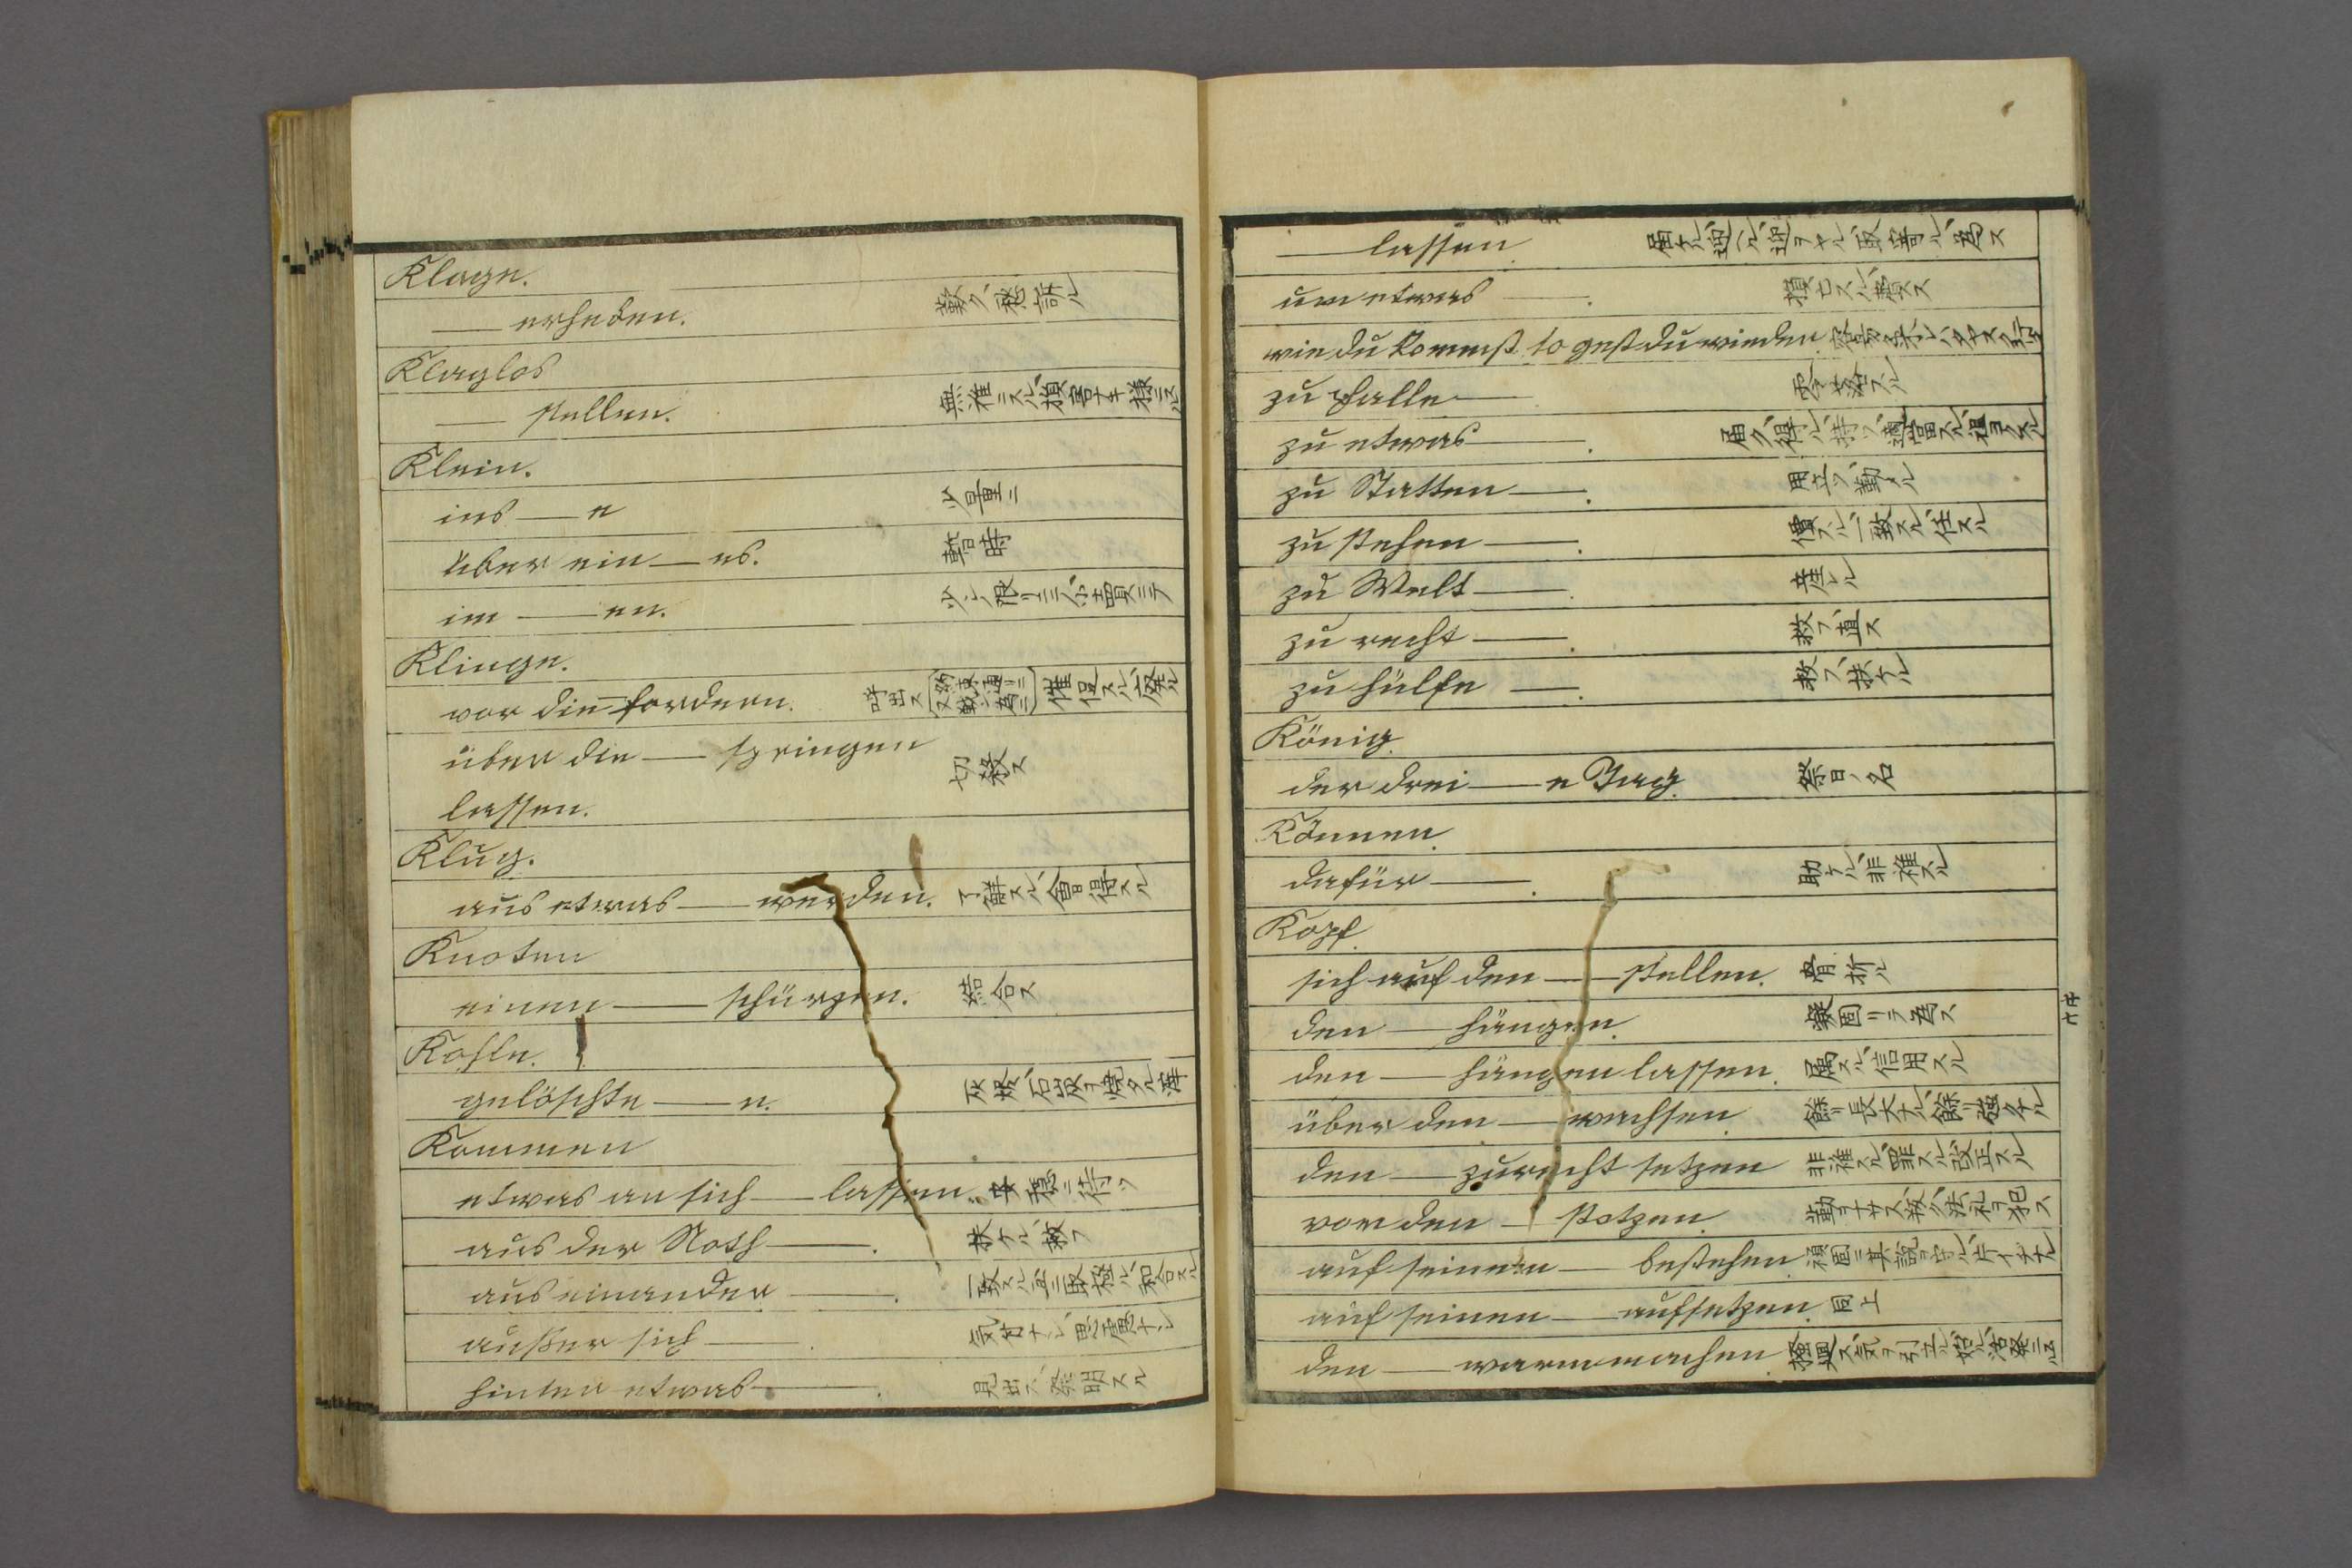 Klage.
— erheben. 歎ク、愁訴ル
Klaglos
— stellen. 無難ニスル、損害ナキ様ニスル
Klein.
ins — e 少量ニ
über ein — es. 暫時
im — en.
Klinge.
vor die — fordern.
über die — springen 切殺ス
lassen.
Klug.
aus etwas — werden. 了解スル、會得スル
Knoten
einen — schürzen. 結合ス
Kohle.
gelöschte — n.
Kommen
etwas an sich — lassen. 安穏ニ待ツ
aus der Noth —. 扶ケル、救フ
aus einander —.
außer sich —.
hinter etwas —. 見出ス、發明スル
— lassen.
um etwas —. 損亡スル、費ス
wie du kommst so gest du wieder
zu Falle — 零落スル
zu etwas —.
zu Statten —. 用立ツ、勤メル
zu stehen —. 價スル、一致スル、住スル
zu Welt —. 産レル
zu recht —. 救フ、直ス
zu hülfe —. 救フ、扶ケル
König.
der drei — e Tag. 祭日ノ名
Können.
dafür —.
Kopf.
sich auf den — stellen. 骨折ル
den — hängen. 凝固ヲ為ス
den — hängen lassen. 属スル、信用スル
über den — wachsen.
den — zurecht setzen 非難スル、罪スル、改正スル
vor den — stotzen.
auf seinem — bestehen
auf seinen — aufsetzen. 同上
den — warm machen.